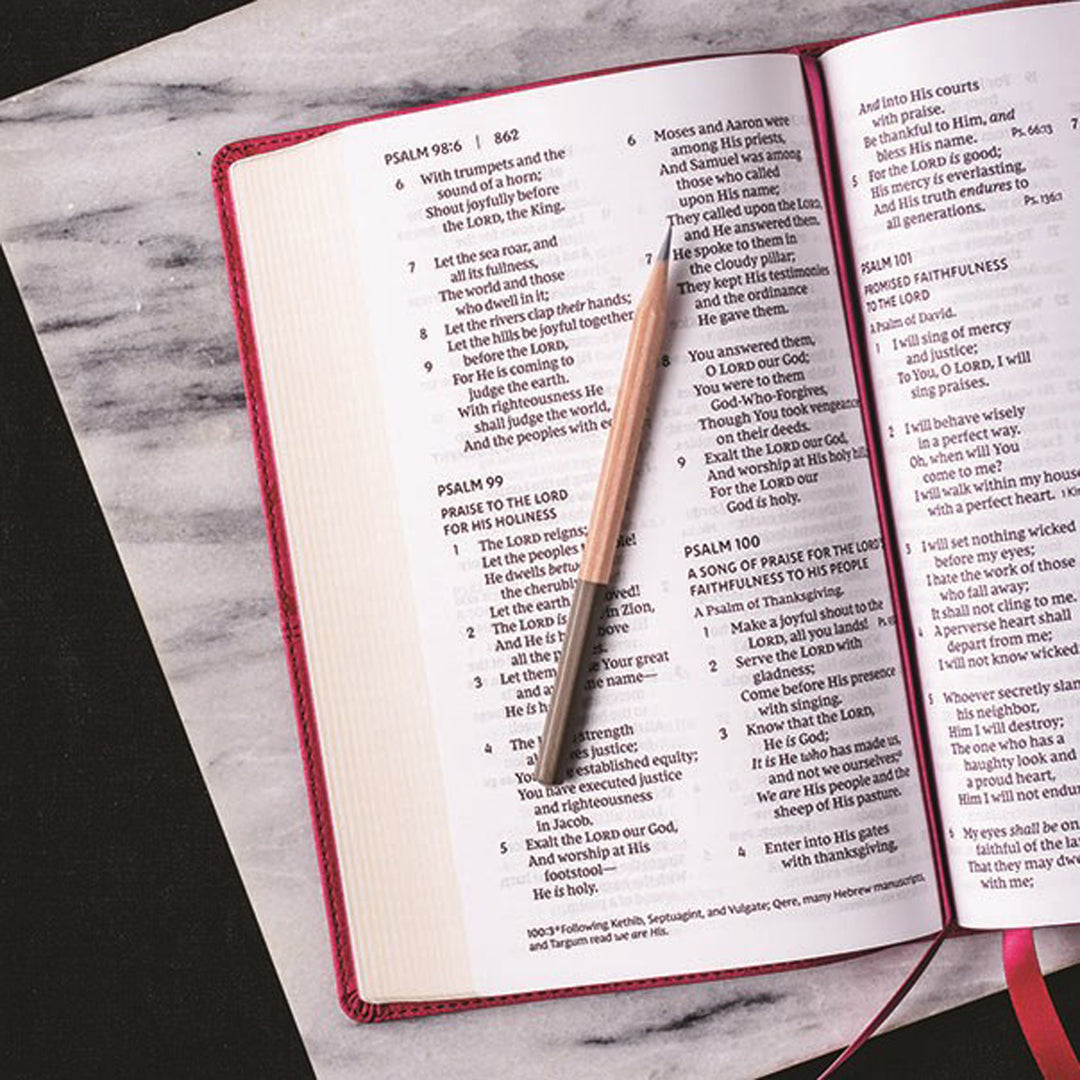 PSALM 98:6 | 862
6 With trumpets and the
sound of a horn;
Shout joyfully before
the LORD, the King.
7 Let the sea roar, and
all its fullness,
The world and those
who dwell in it;
8 Let the rivers clap their hands;
Let the hills be joyful together
before the LORD,
9 For He is coming to
judge the earth.
With righteousness He
shall judge the world,
And the peoples with
PSALM 99
PRAISE TO THE LORD
FOR HIS HOLINESS
1 The LORD reigns;
Let the peoples
He dwells
the cherubi
Let the earth
2 The LORD is in Zion,
And He is
all the
3 Let them Your great
and
He is
4 The strength
justice;
You established equity;
You have executed justice
and righteousness
in Jacob.
5 Exalt the LORD our God,
And worship at His
footstool—
He is holy.
6 Moses and Aaron were
among His priests,
And Samuel was among
those who called
upon His name;
They called upon the LORD,
and He answered them.
7 He spoke to them in
the cloudy pillar;
They kept His testimonies
and the ordinance
He gave them.
8 You answered them,
O LORD our God;
You were to them
God-Who-Forgives,
Though You took vengeance
on their deeds.
9 Exalt the LORD our God,
And worship at His holy hill;
For the LORD our
God is holy.
PSALM 100
A SONG OF PRAISE FOR THE LORD'S
FAITHFULNESS TO HIS PEOPLE
A Psalm of Thanksgiving.
1 Make a joyful shout to the
LORD, all you lands! Ps.
2 Serve the LORD with
gladness;
Come before His presence
with singing.
3 Know that the LORD,
He is God;
It is He who has made us,
and not we ourselves;ᵃ
We are His people and the
sheep of His pasture.
4 Enter into His gates
with thanksgiving,
100:3ᵃ Following Kethib, Septuagint, and Vulgate; Qere, many Hebrew manuscripts,
and Targum read we are His.
And into His courts
with praise.
Be thankful to Him, and
bless His name. Ps. 66:13
5 For the LORD is good;
His mercy is everlasting,
And His truth endures to
all generations. Ps. 136:1
PSALM 101
PROMISED FAITHFULNESS
TO THE LORD
A Psalm of David.
1 I will sing of mercy
and justice;
To You, O LORD, I will
sing praises.
2 I will behave wisely
in a perfect way.
Oh, when will You
come to me?
I will walk within my house
with a perfect heart.
3 I will set nothing wicked
before my eyes;
I hate the work of those
who fall away;
It shall not cling to me.
4 A perverse heart shall
depart from me;
I will not know wicked
5 Whoever secretly slan
his neighbor,
Him I will destroy;
The one who has a
haughty look and
a proud heart,
Him I will not endu
6 My eyes shall be on
faithful of the la
That they may dwe
with me;
7